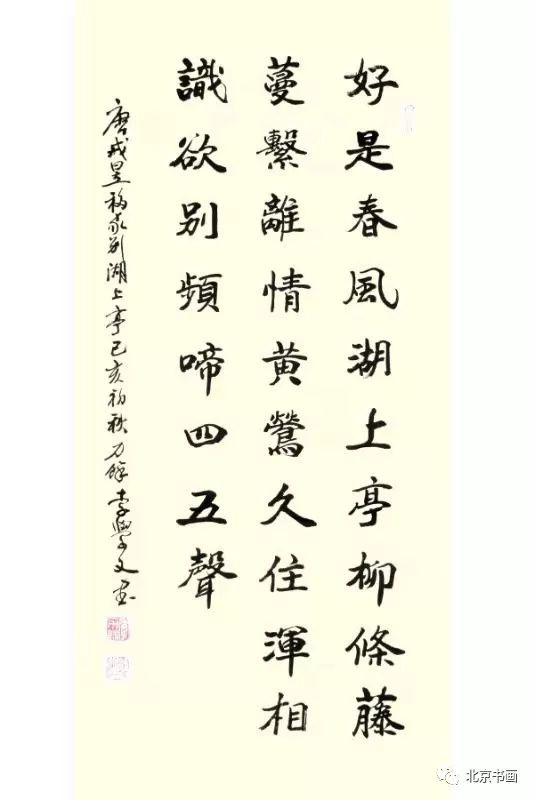 好是春風湖上亭柳條藤
蔓繫離情黄鶯久住渾相
識欲别頻啼四五聲
唐戎昱移家别湖上亭己亥初秋力鋒李學文書
北京书画